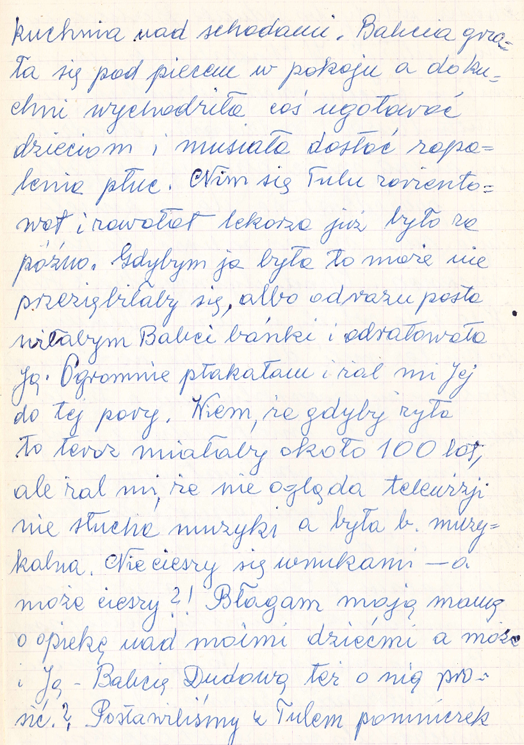 kuchnia nad schodami. Babcia grza=
ła się pod piecem w pokoju a do ku=
chni wychodziła coś ugotować
dzieciom i musiała dostać zapa=
lenia płuc. Nim się Tulu zoriento=
wał i zawołał lekarza już było za
późno. Gdybym ja była to może nie
przeziębiłaby się, albo odrazu posta
wiłabym Babci bańki i odratowała
Ją. Ogromnie płakałam i żal mi Jej
do tej pory. Wiem, że gdyby żyła
to teraz miałaby około 100 lat,
ale żal mi, że nie ogląda telewizji
nie słucha muzyki a była b. muzy=
kalna. Nie cieszy się wnukami — a
może cieszy?! Błagam moją mamę
o opiekę nad moimi dziećmi a może
i Ją - Babcię Dudową też o nią pro-
sić.? Postawiliśmy z Tulem pomniczek